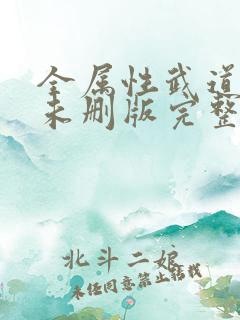 全属性武道
未删版完整
北斗二娘
未经同意禁止转载